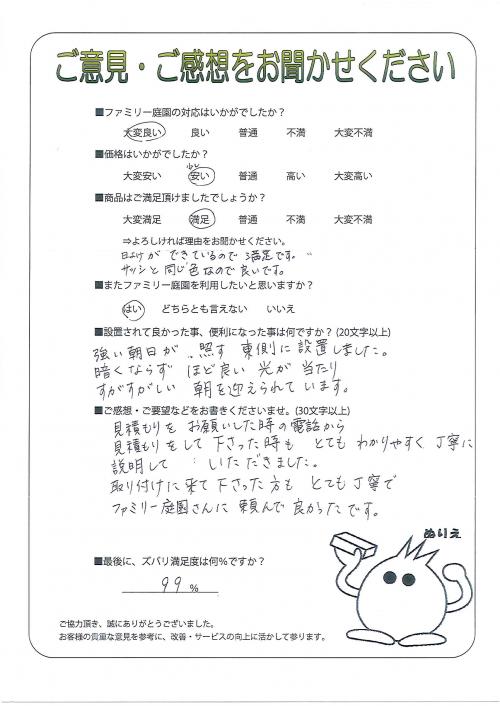 ご意見・ご感想をお聞かせください
■ファミリー庭園の対応はいかがでしたか？
大変良い 良い 普通 不満 大変不満
■価格はいかがでしたか？
少し
大変安い 安い 普通 高い 大変高い
■商品はご満足頂けましたでしょうか？
大変満足 満足 普通 不満 大変不満
⇒よろしければ理由をお聞かせください。
日よけが できているので 満足です。
サッシと同じ色なので良いです。
■またファミリー庭園を利用したいと思いますか？
はい どちらとも言えない いいえ
■設置されて良かった事、便利になった事は何ですか？(20文字以上)
強い朝日が 照す 東側に設置しました。
暗くならず ほど良い 光が 当たり
すがすがしい 朝を迎えられています。
■ご感想・ご要望などをお書きくださいませ。(30文字以上)
見積もりを お願いした時の電話から
見積もりをして下さった時も とても わかりやすく 丁寧に
説明して いただきました。
取り付けに来て下さった方も とても丁寧で
ファミリー庭園さんに 頼んで良かったです。
ぬりえ
■最後に、ズバリ満足度は何％ですか？
99 %
ご協力頂き、誠にありがとうございました。
お客様の貴重な意見を参考に、改善・サービスの向上に活かして参ります。